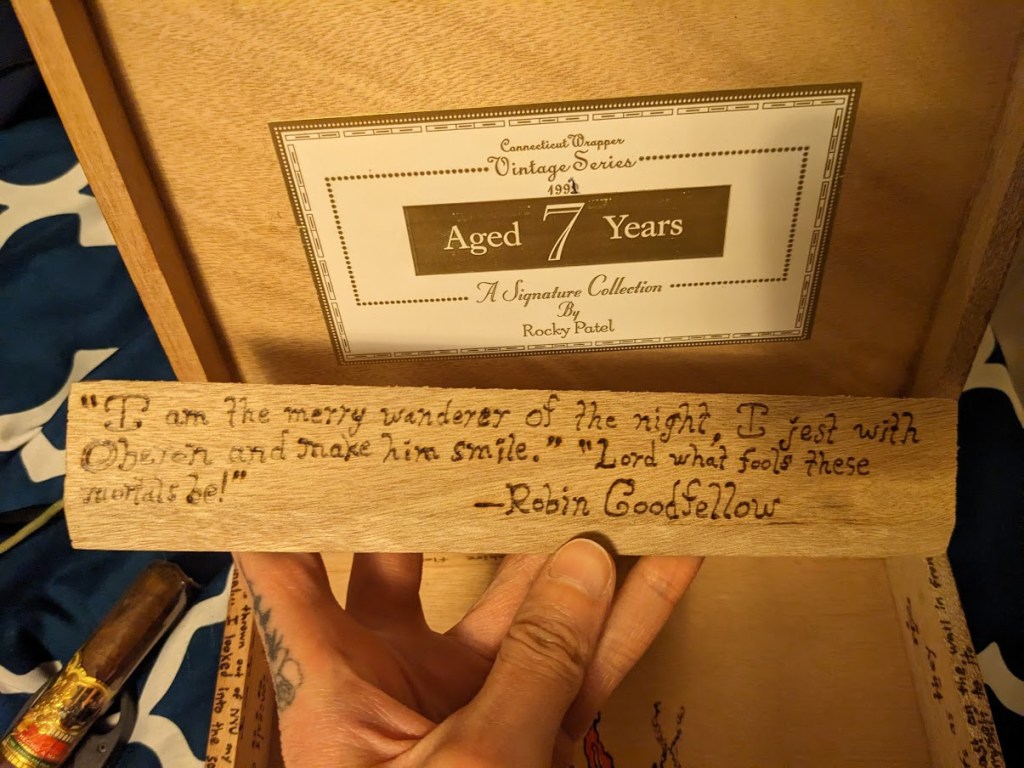 Connecticut Wrapper
Vintage Series
199
Aged 7 Years
A Signature Collection
By
Rocky Patel
"I am the merry wanderer of the night, I jest with
Oberon and make him smile." "Lord what fools these
mortals be!"
—Robin Goodfellow
thrown out of NYU my
I looked into the
on the wall in